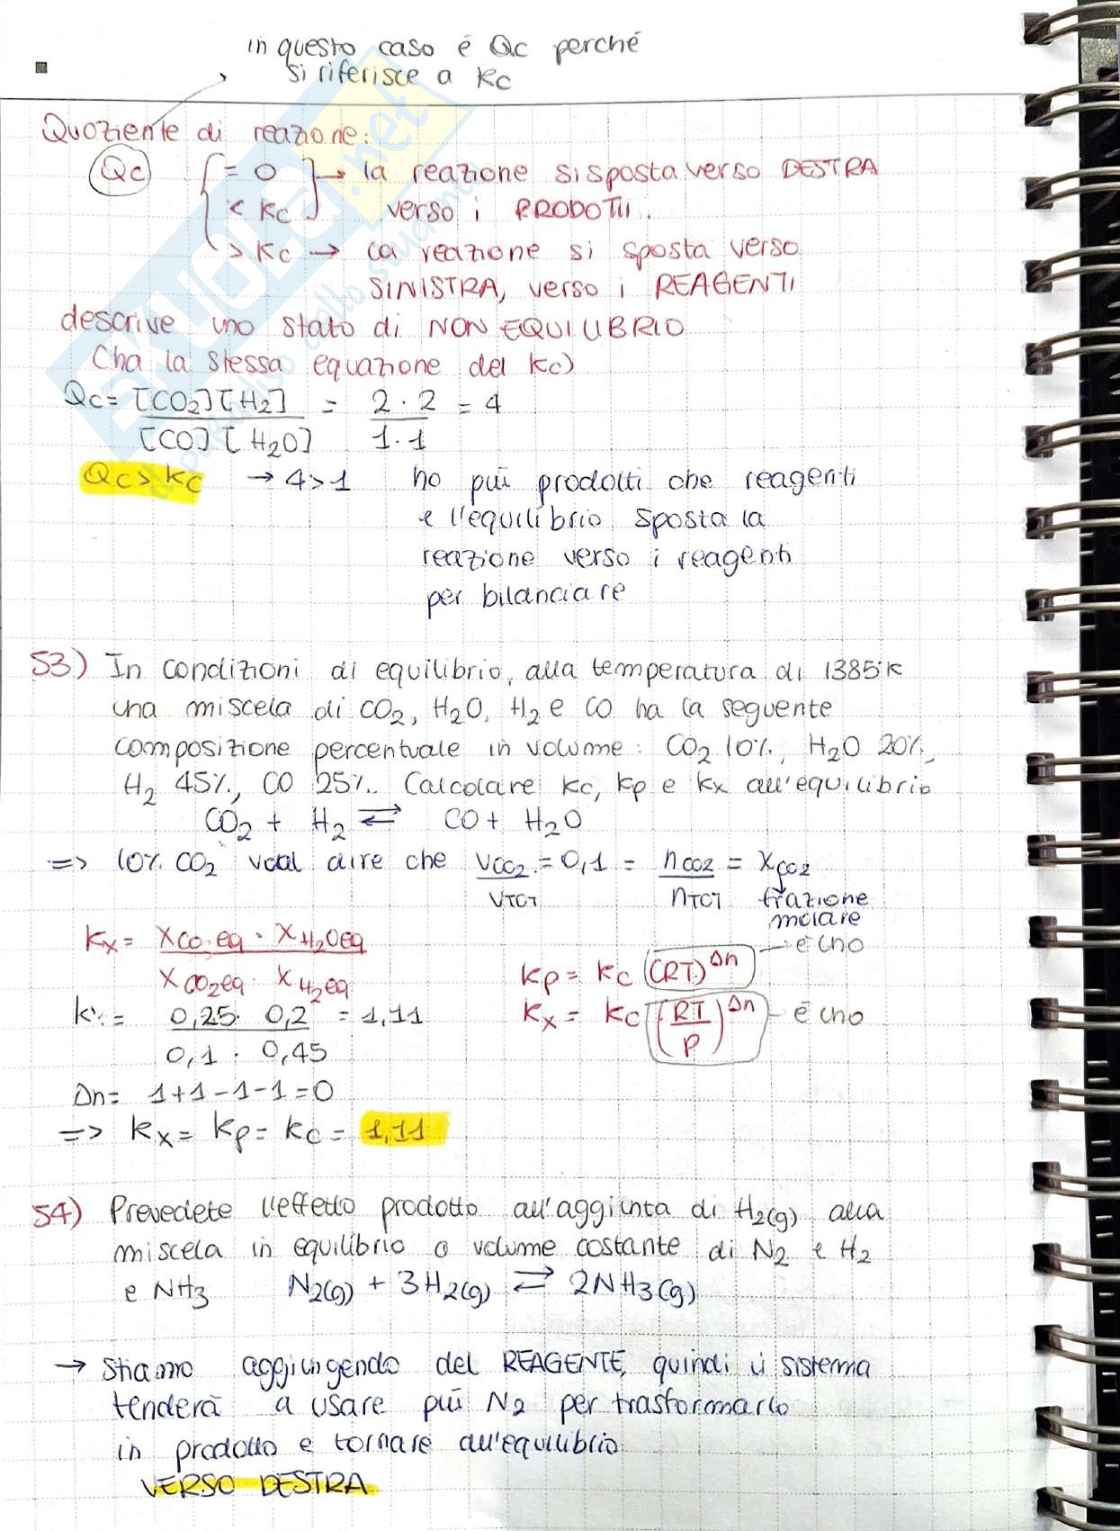 in questo caso é Qc perché
si riferisce a Kc
Quoziente di reazione:
Qc = 0 → la reazione si sposta verso DESTRA
< Kc verso i PRODOTTI.
> Kc → la reazione si sposta verso
SINISTRA, verso i REAGENTI
descrive uno stato di NON EQUILIBRIO
(ha la stessa equazione del Kc)
Qc = [CO2][H2] / [CO][H2O] = 2 · 2 / 1 · 1 = 4
Qc > Kc → 4>1 ho più prodotti che reagenti
e l'equilibrio sposta la
reazione verso i reagenti
per bilanciare
53) In condizioni di equilibrio, alla temperatura di 1385°K
una miscela di CO2, H2O, H2 e CO ha la seguente
composizione percentuale in volume: CO2 10%, H2O 20%,
H2 45%, CO 25%. Calcolare Kc, Kp e Kx all'equilibrio
CO2 + H2 ⇄ CO + H2O
=> 10% CO2 vuol dire che VCO2 / VTOT = 0,1 = nCO2 / nTOT = XCO2
frazione
molare
Kx = XCO eq · XH2O eq / XCO2 eq · XH2 eq
Kp = Kc (RT)^Δn — è uno
Kx = 0,25 · 0,2 / 0,1 · 0,45 = 1,11
Kx = Kc (RT/P)^Δn - è uno
Δn = 1+1-1-1=0
=> Kx = Kp = Kc = 1,11
54) Prevedete l'effetto prodotto all'aggiunta di H2(g) alla
miscela in equilibrio a volume costante di N2 e H2
e NH3 N2(g) + 3H2(g) ⇄ 2NH3(g)
→ Stiamo aggiungendo del REAGENTE, quindi il sistema
tenderà a usare più N2 per trasformarlo
in prodotto e tornare all'equilibrio
VERSO DESTRA